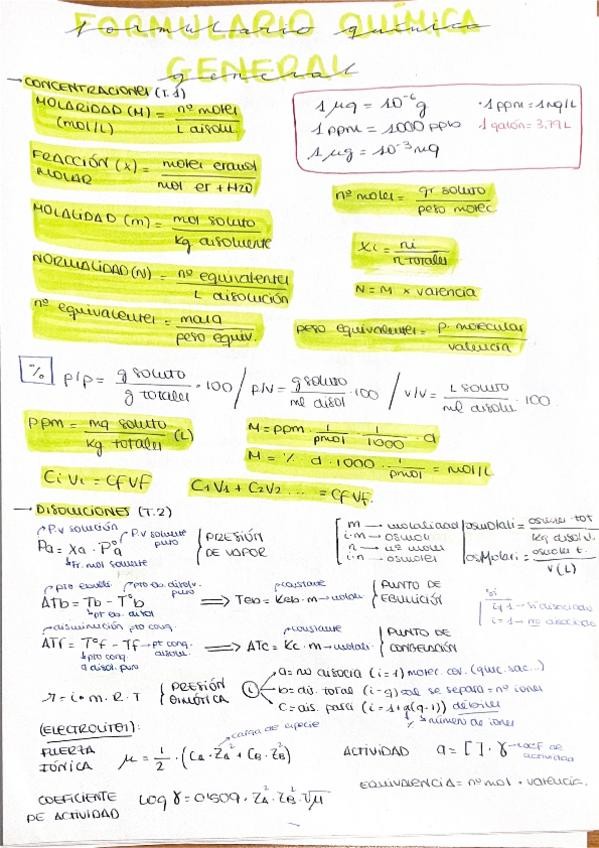 FORMULARIO QUÍMICA
GENERAL
→ CONCENTRACIONES (T.1)
MOLARIDAD (M) = nº moles / L disolu.
(mol/L)
1 µg = 10⁻⁶ g · 1 ppm = 1 mg/L
1 ppm = 1000 ppb 1 galón = 3,79 L
1 µg = 10⁻³ mg
FRACCIÓN (X) = moles / mol + H2O
MOLAR
nº moles = gr soluto / peso molec.
MOLALIDAD (m) = mol soluto / Kg disolvente
Xi = ni / n totales
NORMALIDAD (N) = nº equivalentes / L disolución
N = M x valencia
nº equivalentes = masa / peso equiv.
peso equivalente = p. molecular / valencia
% p/p = g soluto / g totales · 100 / p/v = g soluto / ml disol · 100 / v/v = L soluto / ml disolu · 100
ppm = mg soluto / Kg totales (L)
M = ppm · 1/pmol · 1/1000 · d
M = % · d · 1000 · 1/pmol = mol/L
CiVi = CfVf
C1V1 + C2V2 ... = CfVf.
→ DISOLUCIONES (T.2)
P.v solución P.v solvente puro
Pa = Xa · Pºa PRESIÓN DE VAPOR
fr. mol solvente
m → molalidad
i·m → osmol
n → nº mol
i·n → osmoles
osmolali = osmol tot / Kg disolv.
osmolari = osmol t. / V (L)
pto ebulli. pto eb. disolv. puro
ΔTb = Tb - Tºb ⟹ Teb = Keb · m → molali PUNTO DE EBULLICIÓN
constante
pt eb. disol
si
i≠1 → si disociado
i=1 → no disociado
disminución pto cong.
ΔTf = Tºf - Tf → pt cong. disolu. ⟹ ΔTc = Kc · m → molali PUNTO DE CONGELACIÓN
constante
pto cong. disol. puro
π = i · m · R · T PRESIÓN OSMÓTICA
i a = no disocia (i=1) molec. cov. (gluc, sac...)
b = dis. total (i=q) se separa = nº iones
c = dis. parci (i=1+α(q-1)) débiles
% número de iones
(ELECTROLITOS):
FUERZA IÓNICA µ = 1/2 · (CA · ZA² + CB · ZB²)
carga de especie
ACTIVIDAD a = [ ] · γ → coef de actividad
EQUIVALENCIA = nº mol · valencia.
COEFICIENTE DE ACTIVIDAD log γ = 0'509 · ZA² · ZB² · √µ